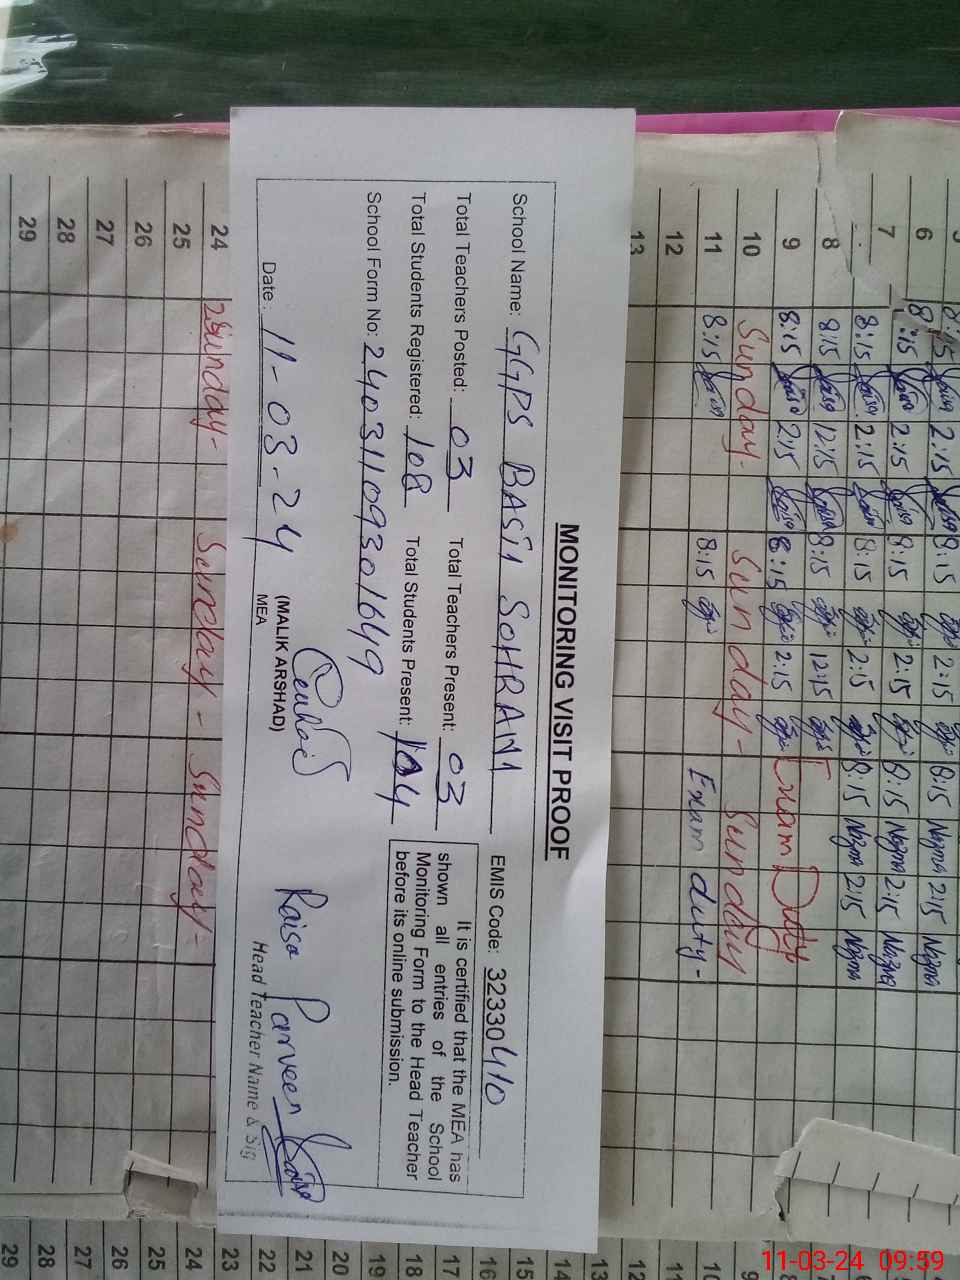 MONITORING VISIT PROOF
School Name: GGPS BASTI SOHRANI EMIS Code: 32330410
Total Teachers Posted: 03 Total Teachers Present: 03
Total Students Registered: 108 Total Students Present: 104
School Form No: 24031109301649
It is certified that the MEA has
shown all entries of the School
Monitoring Form to the Head Teacher
before its online submission.
Date: 11-03-24
(MALIK ARSHAD)
MEA
Raisa Parveen
Head Teacher Name & Sig
6 8:15 2:15 8:15 2:15 8:15 Nazma 2:15 Nazma
7 8:15 2:15 8:15 2:15 8:15 Nazma 2:15 Nazma
8 8:15 12:15 8:15 12:15
9 8:15 2:15 8:15 2:15 Exam Duty
10 Sunday- Sunday- Sunday
11 8:15 8:15 Exam duty-
12
13
24 Sunday- Sunday- Sunday-
25
26
27
28
29
10
11
12
13
14
15
16
17
18
19
20
21
22
23
24
25
26
27
28
29
11-03-24 09:59